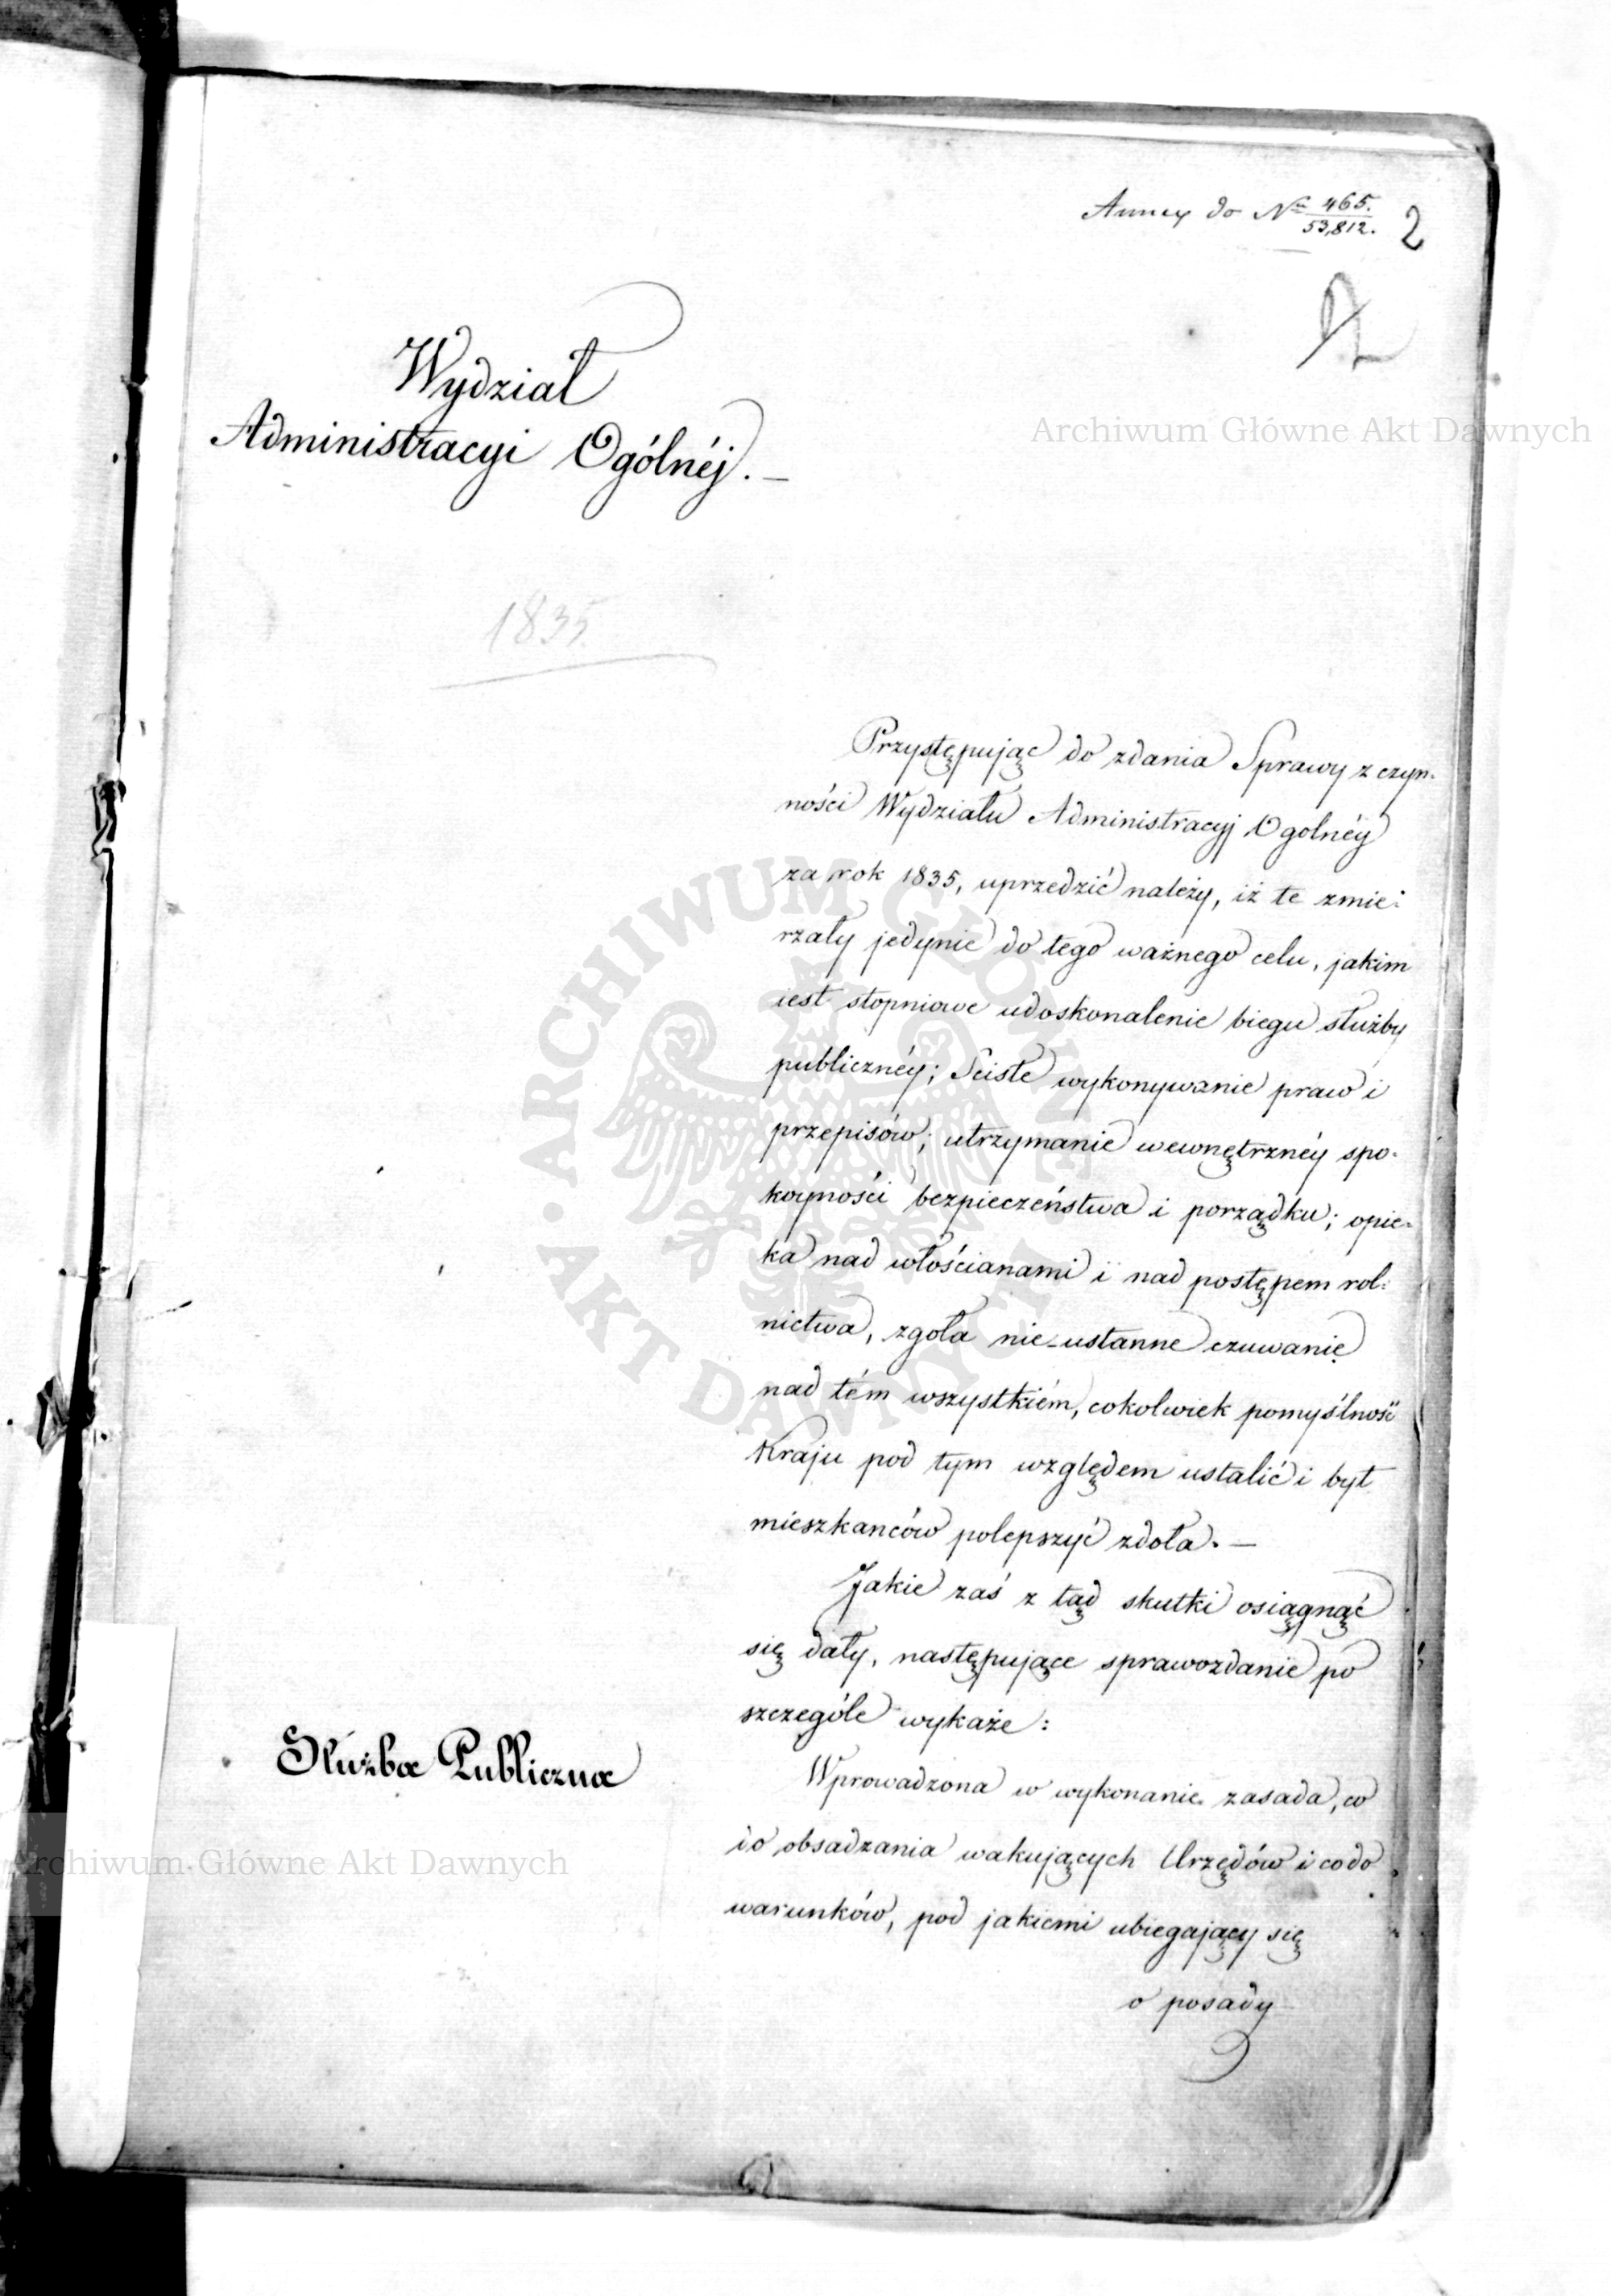 Annex do Nr 465. 2
53,812.
2
Wydział
Administracyi Ogólnéj. —
Archiwum Główne Akt Dawnych
1835.
Przystępując do zdania Sprawy z czyn-
ności Wydziału Administracyj Ogolnéy
za rok 1835, uprzedzić należy, iż te zmie-
rzały jedynie do tego ważnego celu, jakim
iest stopniowe udoskonalenie biegu służby
publicznéy; Scisłe wykonywanie praw i
przepisów; utrzymanie wewnętrznéy spo-
koyności bezpieczeństwa i porządku; opie-
ka nad włościanami i nad postępem rol-
nictwa, zgoła nie-ustanne czuwanie
nad tém wszystkiém, cokolwiek pomyślność
Kraju pod tym względem ustalić i byt
mieszkanców polepszyć zdoła. —
Jakie zaś z tąd skutki osiągnąć
się dały, następujące sprawozdanie po
szczególe wykaże:
Służba Publiczna
Wprowadzona w wykonanie zasada, co
do obsadzania wakujących Urzędów i co do
warunków, pod jakiemi ubiegający się
o posady
ARCHIWUM GŁÓWNE AKT DAWNYCH
Archiwum Główne Akt Dawnych